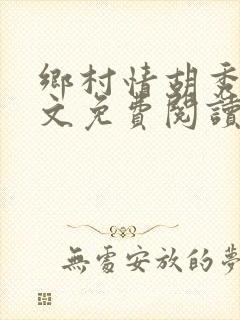 鄉村情胡秀
文免費閱讀
無處安放的夢